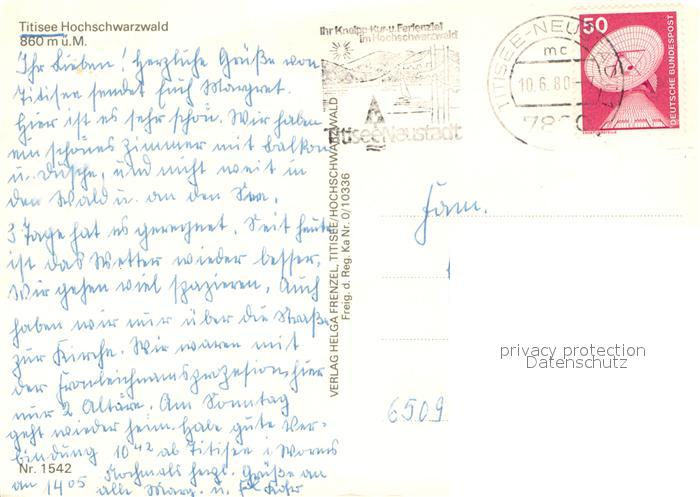 Titisee Hochschwarzwald
860 m ü. M.
Ihr Lieben! Herzliche Grüße von
Titisee sendet Euch Margret.
Hier ist es sehr schön. Wir haben
ein schönes Zimmer mit Balkon
u. Dusche, und nicht weit in
den Wald u. an den See.
3 Tage hat es geregnet. Seit heute
ist das Wetter wieder besser.
Wir gehen viel spazieren. Auch
haben wir nur über die Straße
zur Kirche. Wir waren mit
der Fronleichnamsprozesion, hier
nur 2 Altäre. Am Sonntag
geht wieder heim. Habe gute Ver-
bindung 10 42 ab Titisee i Worms
an 14 05 Nochmals herzl. Grüße an
alle Marg. u.
Nr. 1542
VERLAG HELGA FRENZEL, TITISEE/HOCHSCHWARZWALD
Freig. d. Reg. Ka Nr. 0/10336
Ihr Kneipp-Kur-u. Ferienziel
im Hochschwarzwald
Titisee-Neustadt
TITISEE-NEUSTADT
mc
10.6.80
7820
50
DEUTSCHE BUNDESPOST
Fam.
6509
privacy protection
Datenschutz